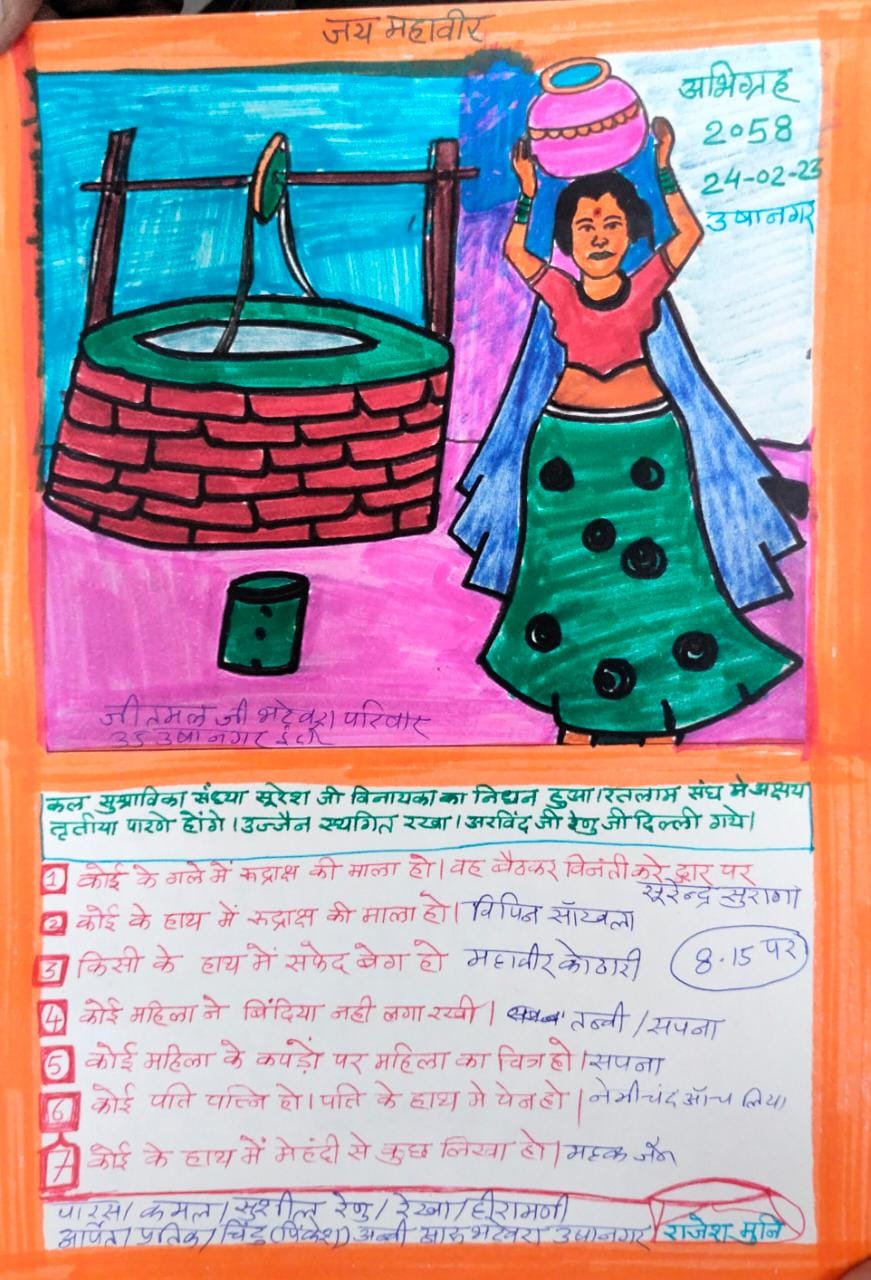 जय महावीर
अभिग्रह
2058
24-02-23
उषानगर
जीतमल जी भटेवरा परिवार
उषानगर इंदौर
कल सुश्राविका संध्या सूरेश जी विनायका का निधन हुआ। रतलाम संघ मे अक्षय
तृतीया पारणे होंगे। उज्जैन स्थगित रखा। अरविंद जी रेणु जी दिल्ली गये।
1 कोई के गले में रूद्राक्ष की माला हो। वह बैठकर विनंती करे द्वार पर
सूरेन्द्र सुराणा
2 कोई के हाथ में रूद्राक्ष की माला हो। विपिन सॉखला
3 किसी के हाथ में सफेद बेग हो महावीर कोठारी
8.15 पर
4 कोई महिला ने बिंदिया नही लगा रखी। तन्वी / सपना
5 कोई महिला के कपड़ो पर महिला का चित्र हो। सपना
6 कोई पति पत्नि हो। पति के हाथ मे पेन हो। नेमीचंद लिया
7 कोई के हाथ में मेहंदी से कुछ लिखा हो। महक जैन
पारस / कमल / सुशील रेणु / रेखा / हीरामनी
अर्पित / प्रतिक / चिंटु (पिंकेश) भटेवरा उषानगर
राजेश मुनि